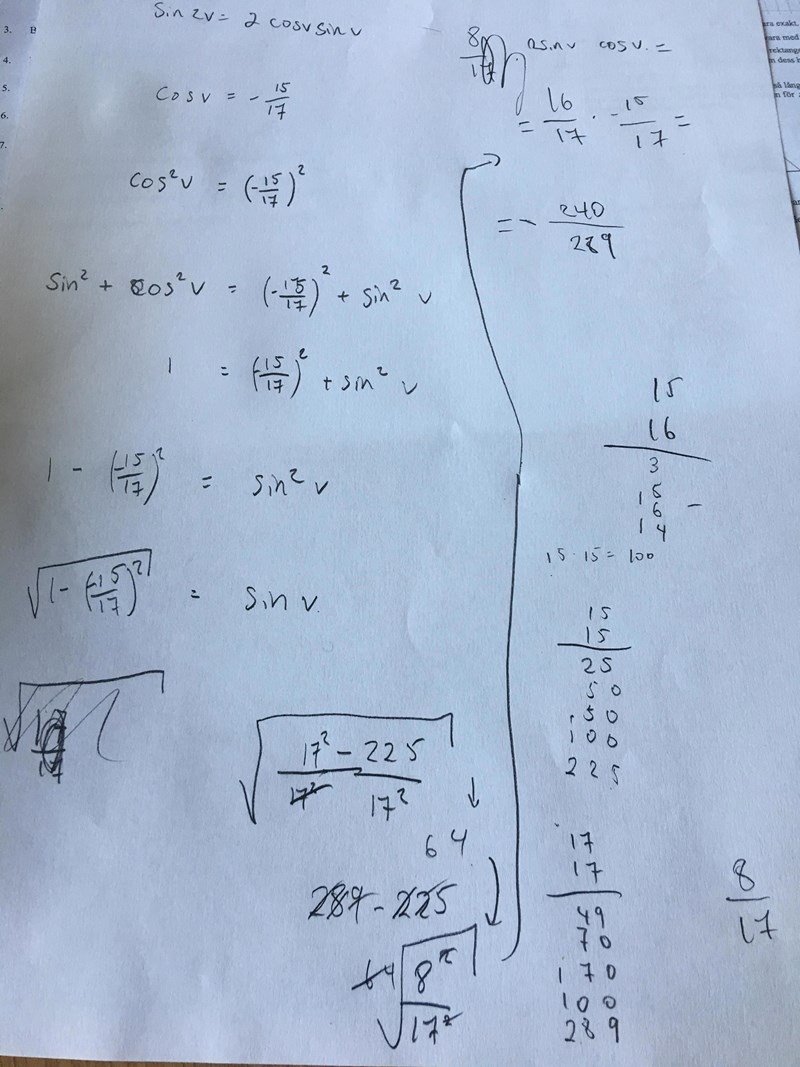 3. B
4.
5.
6.
7.
Sin 2v = 2 cosv sin v
Cos v = - 15/17
Cos²v = (-15/17)²
Sin² + Cos²v = (-15/17)² + Sin² v
1 = (-15/17)² + sin² v
1 - (-15/17)² = sin² v
√(1 - (-15/17)²) = Sin v
√((17² - 225)/17²)
64
289 - 225
64 √(8²/17²)
8/17 2sinv cosv =
= 16/17 · -15/17 =
= - 240/289
15
16
3
15
6 -
14
15 · 15 = 100
15
15
25
50
50
100
225
17
17
49
70
170
100
289
8/17
ara exakt.
ara med
rektange
n dess h
så lång
n för